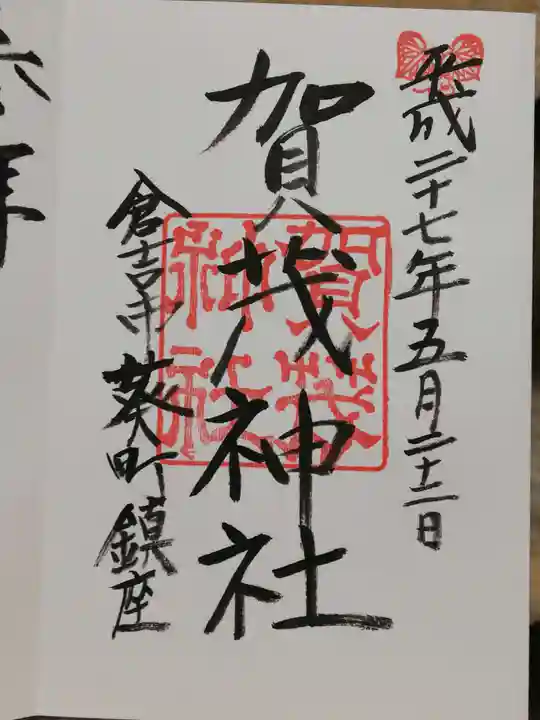 平成二十七年五月二十二日
賀茂神社
賀茂
神社
倉吉市葵町鎮座
拝